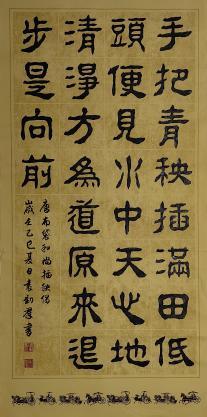 手把青秧插滿田低
頭便見水中天心地
清淨方為道原來退
步是向前
唐布袋和尚插秧偈
歲在乙巳夏日袁書